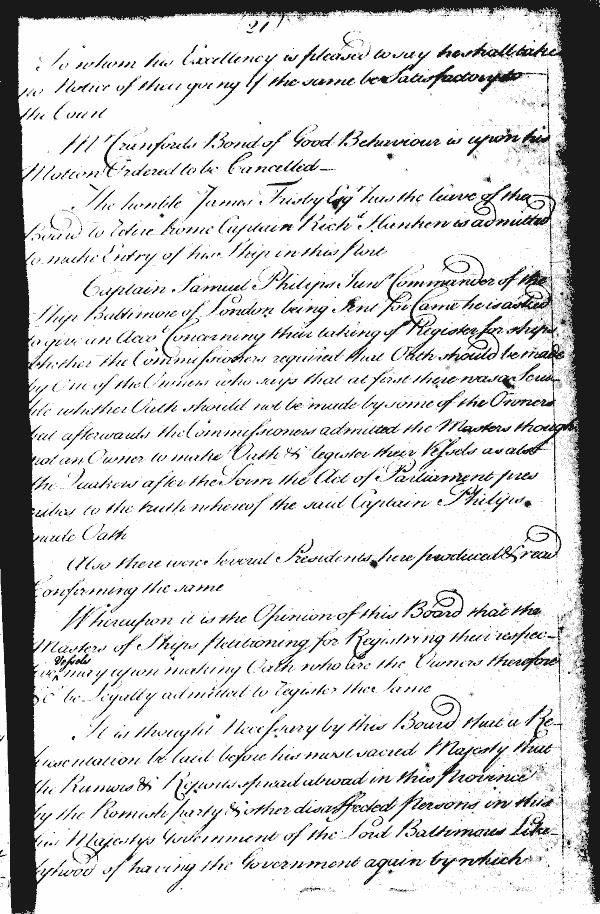 21
To whom his Excellency is pleased to say he shall take
no Notice of their going if the same be Satisfactory to
the Court
Mr Cranfords Bond of Good Behaviour is upon his
Motion Ordered to be Cancelled
The honble James Frisby Esqr has the leave of the
Board to retire home Captain Richd Hanken is admitted
to make Entry of his Ship in this Port
Captain Samuel Philips Junr Commander of the
Ship Baltimore of London being Sent for Came he is asked
to give an Acco Concerning their taking of Register for ships
whether the Commissioners required that Oath should be made
by One of the Owners who says that at first there was a Scru
ple whether Oath should not be made by some of the Owners
but afterwards the Commissioners admitted the Masters though
not an Owner to make Oath & Register their Vessels as also
the Quakers after the Form the Act of Parliament pres
cribes to the truth whereof the said Captain Philips
made Oath
Also there were Several Presidents here produced & read
Confirming the same
Whereupon it is the Opinion of this Board that the
Masters of Ships Petitioning for Registring their respec-
tive Vessels may upon making Oath who are the Owners therefore
&c be Legally admitted to register the Same
It is thought necessary by this Board that a Re-
presentation be laid before his most sacred Majesty that
the Rumors & Reports spread abroad in this Province
by the Romish party & other disaffected persons in this
his Majestys Government of the Lord Baltimores Like-
lyhood of having the Government again by which